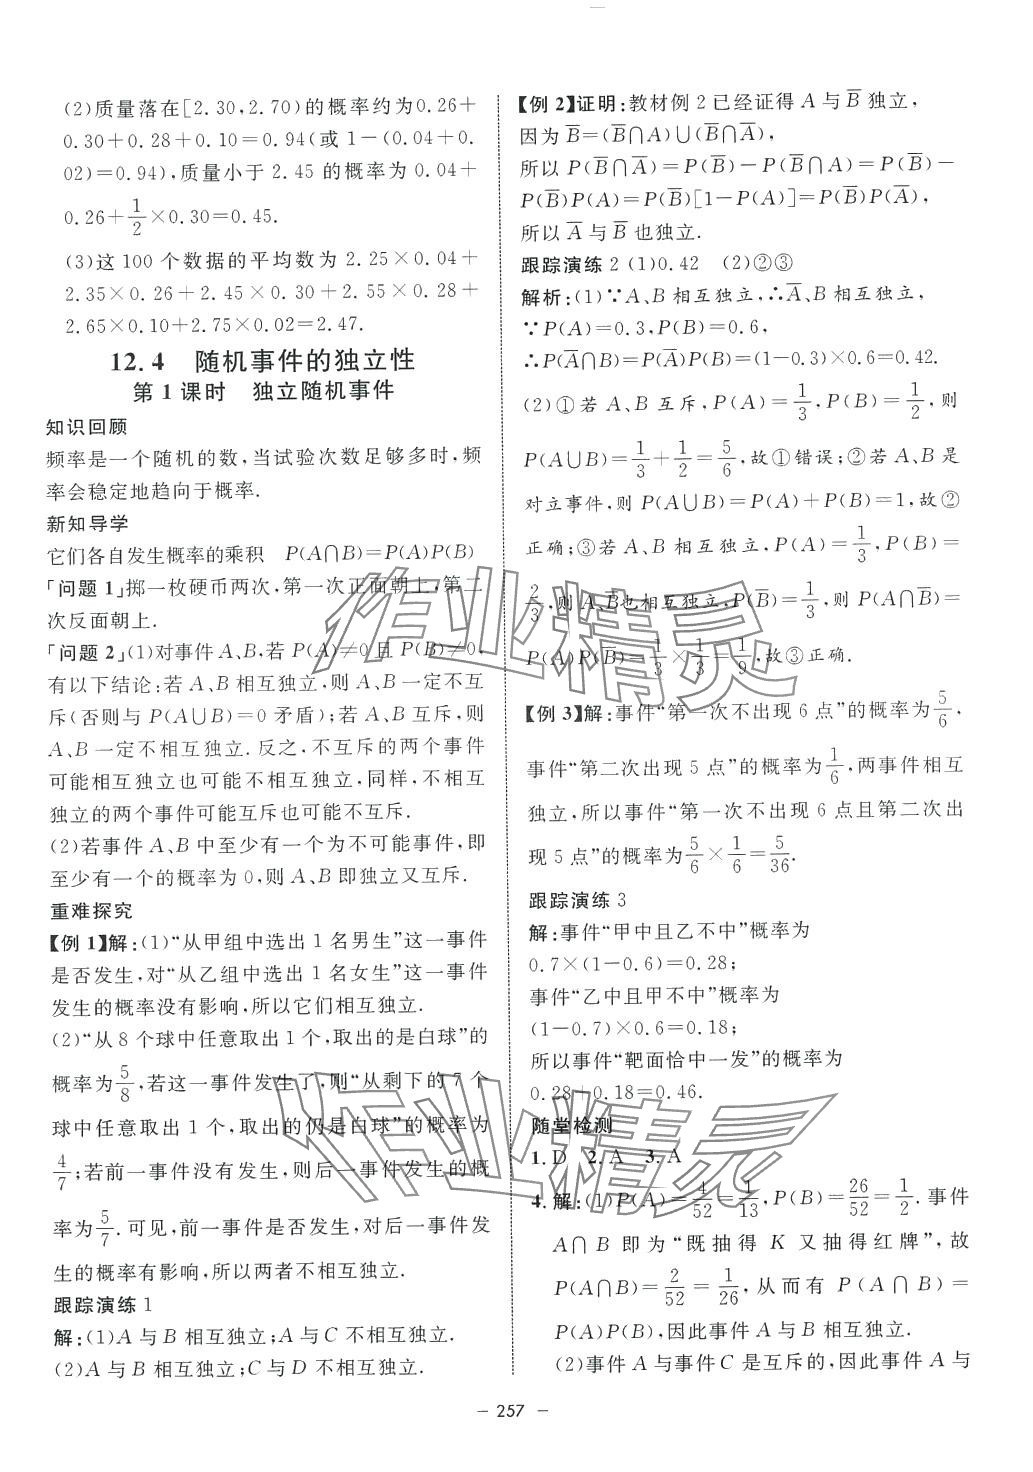 (2)质量落在[2.30,2.70)的概率约为0.26+
0.30+0.28+0.10=0.94(或 1-(0.04+
0.02)=0.94),质量小于 2.45 的概率为 0.04+
0.26+1/2×0.30=0.45.
(3)这 100 个数据的平均数为 2.25×0.04+
2.35×0.26+2.45×0.30+2.55×0.28+
2.65×0.10+2.75×0.02=2.47.
12.4 随机事件的独立性
第 1 课时 独立随机事件
知识回顾
频率是一个随机的数,当试验次数足够多时,频
率会稳定地趋向于概率.
新知导学
它们各自发生概率的乘积 P(A∩B)=P(A)P(B)
「问题 1」掷一枚硬币两次,第一次正面朝上,第二
次反面朝上.
「问题 2」(1)对事件 A、B,若 P(A)≠0 且 P(B)≠0,
有以下结论:若 A、B 相互独立,则 A、B 一定不互
斥(否则与 P(A∪B)=0 矛盾);若 A、B 互斥,则
A、B 一定不相互独立.反之,不互斥的两个事件
可能相互独立也可能不相互独立,同样,不相互
独立的两个事件可能互斥也可能不互斥.
(2)若事件 A、B 中至少有一个为不可能事件,即
至少有一个的概率为 0,则 A、B 即独立又互斥.
重难探究
【例 1】解:(1)“从甲组中选出 1 名男生”这一事件
是否发生,对“从乙组中选出 1 名女生”这一事件
发生的概率没有影响,所以它们相互独立.
(2)“从 8 个球中任意取出 1 个,取出的是白球”的
概率为5/8,若这一事件发生了,则“从剩下的 7 个
球中任意取出 1 个,取出的仍是白球”的概率为
4/7;若前一事件没有发生,则后一事件发生的概
率为5/7.可见,前一事件是否发生,对后一事件发
生的概率有影响,所以两者不相互独立.
跟踪演练 1
解:(1)A 与 B 相互独立;A 与 C 不相互独立.
(2)A 与 B 相互独立;C 与 D 不相互独立.
【例 2】证明:教材例 2 已经证得 A 与 B̅ 独立,
因为 B̅=(B̅∩A)∪(B̅∩A̅),
所以 P(B̅∩A̅)=P(B̅)-P(B̅∩A)=P(B̅)-
P(B̅)P(A)=P(B̅)[1-P(A)]=P(B̅)P(A̅),
所以 A̅ 与 B̅ 也独立.
跟踪演练 2 (1)0.42 (2)②③
解析:(1)∵A、B 相互独立,∴A̅、B 相互独立,
∵P(A)=0.3,P(B)=0.6,
∴P(A̅∩B)=P(A̅)P(B)=(1-0.3)×0.6=0.42.
(2)①若 A、B 互斥,P(A)=1/3,P(B)=1/2,则
P(A∪B)=1/3+1/2=5/6,故①错误;②若 A、B 是
对立事件,则 P(A∪B)=P(A)+P(B)=1,故②
正确;③若 A、B 相互独立,P(A)=1/3,P(B)=
2/3,则 A、B̅也相互独立,P(B̅)=1/3,则 P(A∩B̅)=
P(A)P(B̅)=1/3×1/3=1/9,故③正确.
【例 3】解:事件“第一次不出现 6 点”的概率为5/6,
事件“第二次出现 5 点”的概率为1/6,两事件相互
独立,所以事件“第一次不出现 6 点且第二次出
现 5 点”的概率为5/6×1/6=5/36.
跟踪演练 3
解:事件“甲中且乙不中”概率为
0.7×(1-0.6)=0.28;
事件“乙中且甲不中”概率为
(1-0.7)×0.6=0.18;
所以事件“靶面恰中一发”的概率为
0.28+0.18=0.46.
随堂检测
1. D 2. A 3. A
4. 解:(1)P(A)=4/52=1/13,P(B)=26/52=1/2.事件
A∩B 即为“既抽得 K 又抽得红牌”,故
P(A∩B)=2/52=1/26,从而有 P(A∩B)=
P(A)P(B),因此事件 A 与 B 相互独立.
(2)事件 A 与事件 C 是互斥的,因此事件 A 与
— 257 —
作业精灵
作业精灵